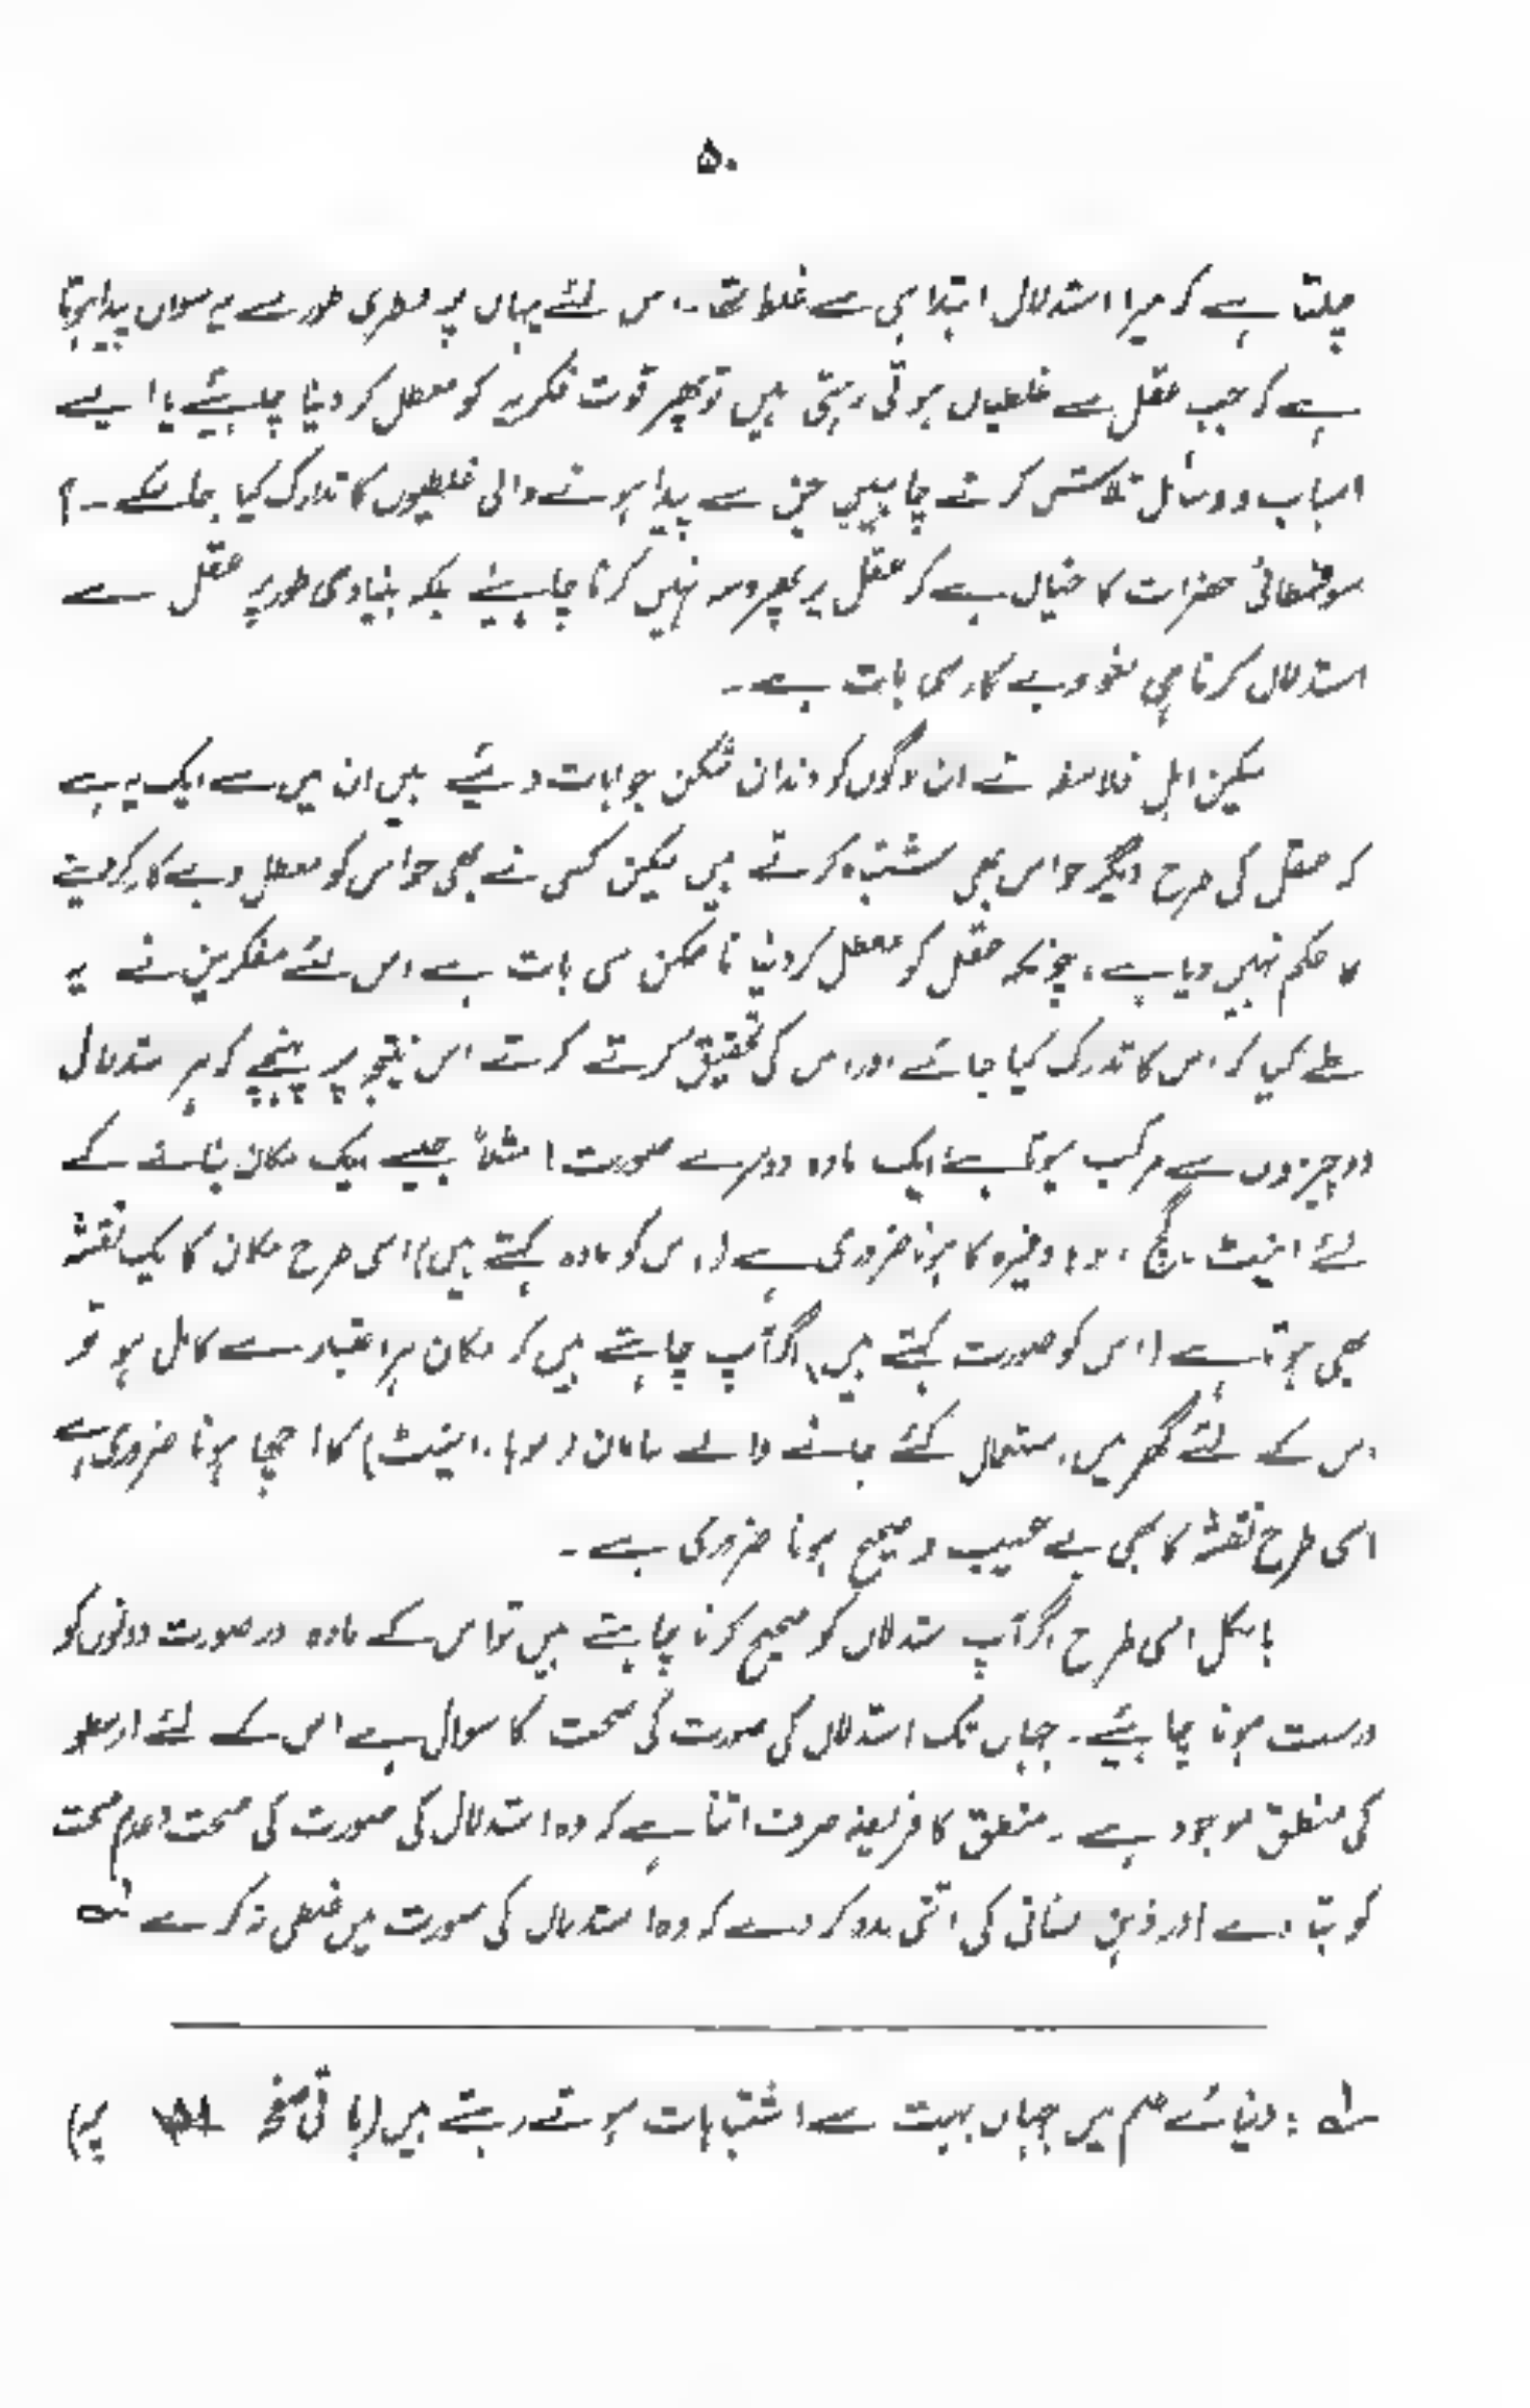 ۵۰
چلتا ہے کہ میرا استدلال ابتدا ہی سے غلط تھا۔ اس لئے یہاں پر فطری طور سے یہ سوال پیدا ہوتا
ہے کہ جب عقل سے غلطیاں ہوتی رہتی ہیں تو پھر قوت فکریہ کو معطل کر دینا چاہیئے یا ایسے
اسباب و وسائل تلاش کرنے چاہییں جن سے پیدا ہونے والی غلطیوں کا تدارک کیا جا سکے۔؟
سوفسطائی حضرات کا خیال ہے کہ عقل پر بھروسہ نہیں کرنا چاہیئے بلکہ بنیادی طور پر عقل سے
استدلال کرنا ہی لغو و بے کار سی بات ہے۔
لیکن اہل فلاسفہ نے ان لوگوں کو دندان شکن جوابات دیئے ہیں ان میں سے ایک یہ ہے
کہ عقل کی طرح دیگر حواس بھی اشتباہ کرتے ہیں لیکن کسی نے بھی حواس کو معطل و بے کار کر دینے
کا حکم نہیں دیا ہے، چونکہ عقل کو معطل کر دینا ناممکن سی بات ہے اس لئے مفکرین نے یہ
طے کیا کہ اس کا تدارک کیا جائے اور اس کی تحقیق کرتے کرتے اس نتیجہ پر پہنچے کہ ہر استدلال
دو چیزوں سے مرکب ہوتا ہے ایک مادہ دوسرے صورت! مثلاً جیسے ایک مکان بنانے کے
لئے اینٹ، گچ، لوہا وغیرہ کا ہونا ضروری ہے (اس کو مادہ کہتے ہیں) اسی طرح مکان کا ایک نقشہ
بھی ہوتا ہے (اس کو صورت کہتے ہیں) اگر آپ چاہتے ہیں کہ مکان ہر اعتبار سے کامل ہو تو
اس کے لئے گھر میں استعمال کئے جانے والے سامان (لوہا، اینٹ) کا اچھا ہونا ضروری ہے
اسی طرح نقشہ کا بھی بے عیب و صحیح ہونا ضروری ہے۔
بالکل اسی طرح اگر آپ استدلال کو صحیح کرنا چاہتے ہیں تو اس کے مادہ اور صورت دونوں کو
درست ہونا چاہیئے۔ جہاں تک استدلال کی صورت کی صحت کا سوال ہے اس کے لئے ارسطو
کی منطق موجود ہے۔ منطق کا فریضہ صرف اتنا ہے کہ وہ استدلال کی صورت کی صحت و عدم صحت
کو بتا دے اور ذہن انسانی کی اتنی مدد کر دے کہ وہ استدلال کی صورت میں غلطی نہ کرے لہ
لہ: دنیائے علم میں جہاں بہت سے اشتباہات ہوتے رہتے ہیں (باقی صفحہ ۵۱ پر)